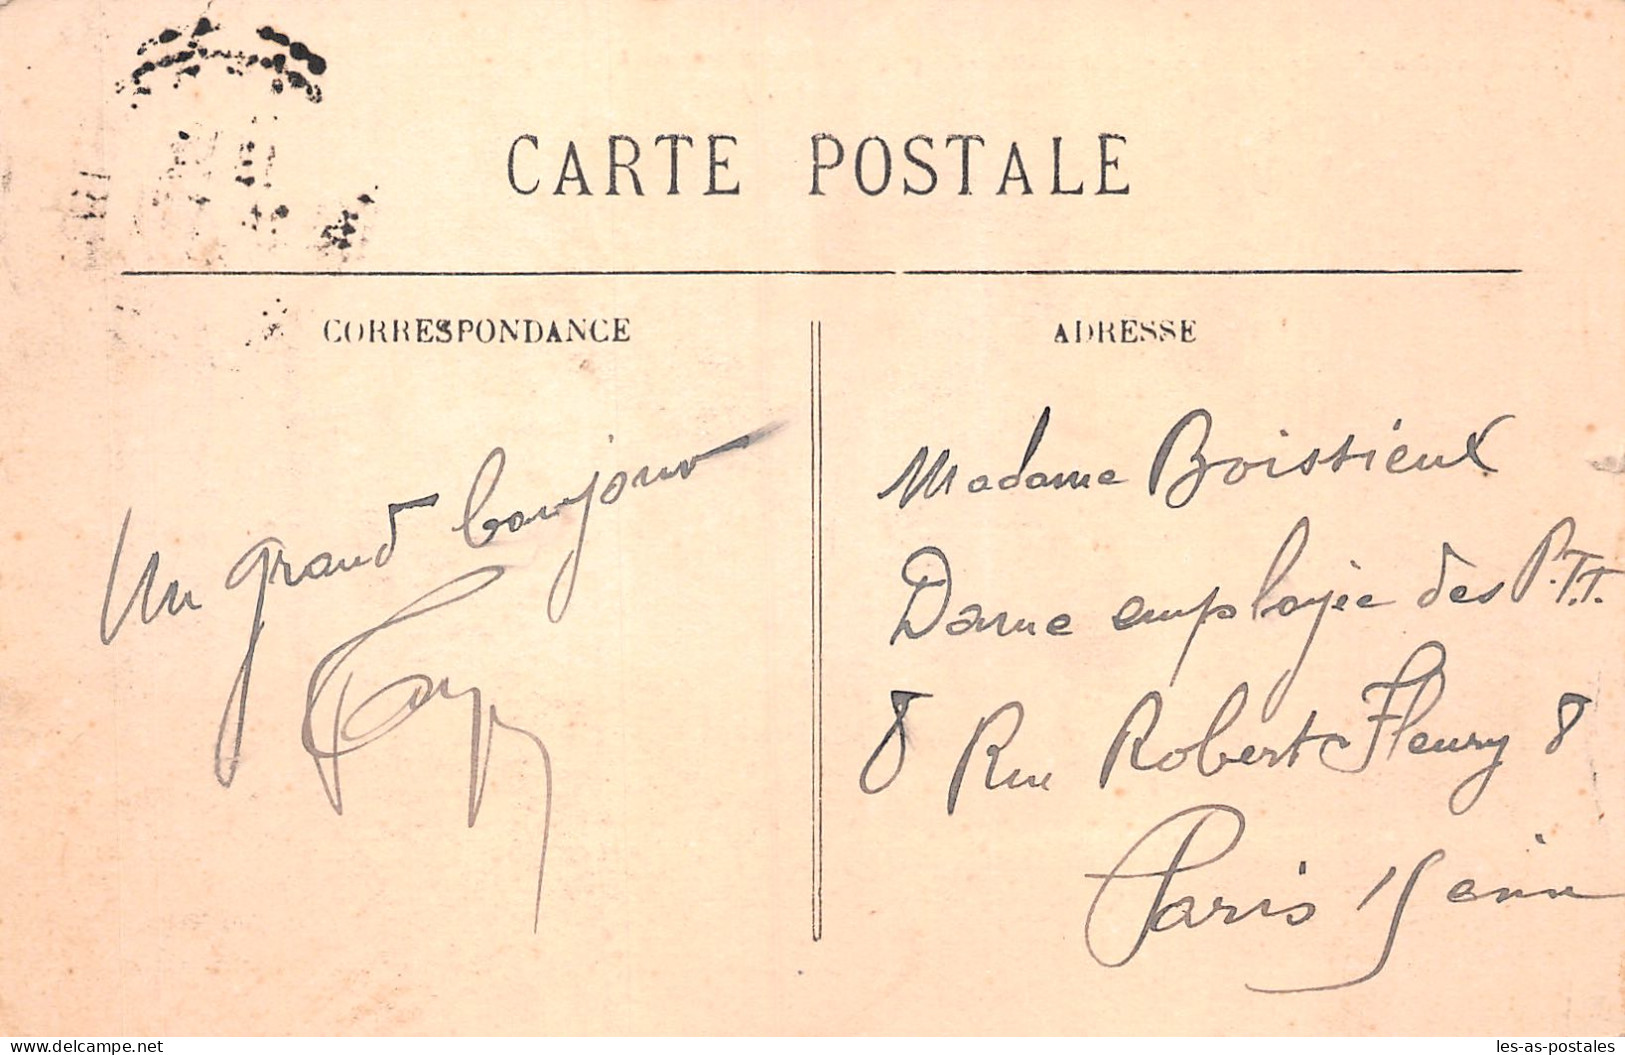 CARTE POSTALE
CORRESPONDANCE
Un grand bonjour
ADRESSE
Madame Boissieux
Dame employée des P.T.T.
8 Rue Robert Fleury 8
Paris 15eme
delcampe.net
les-as-postales